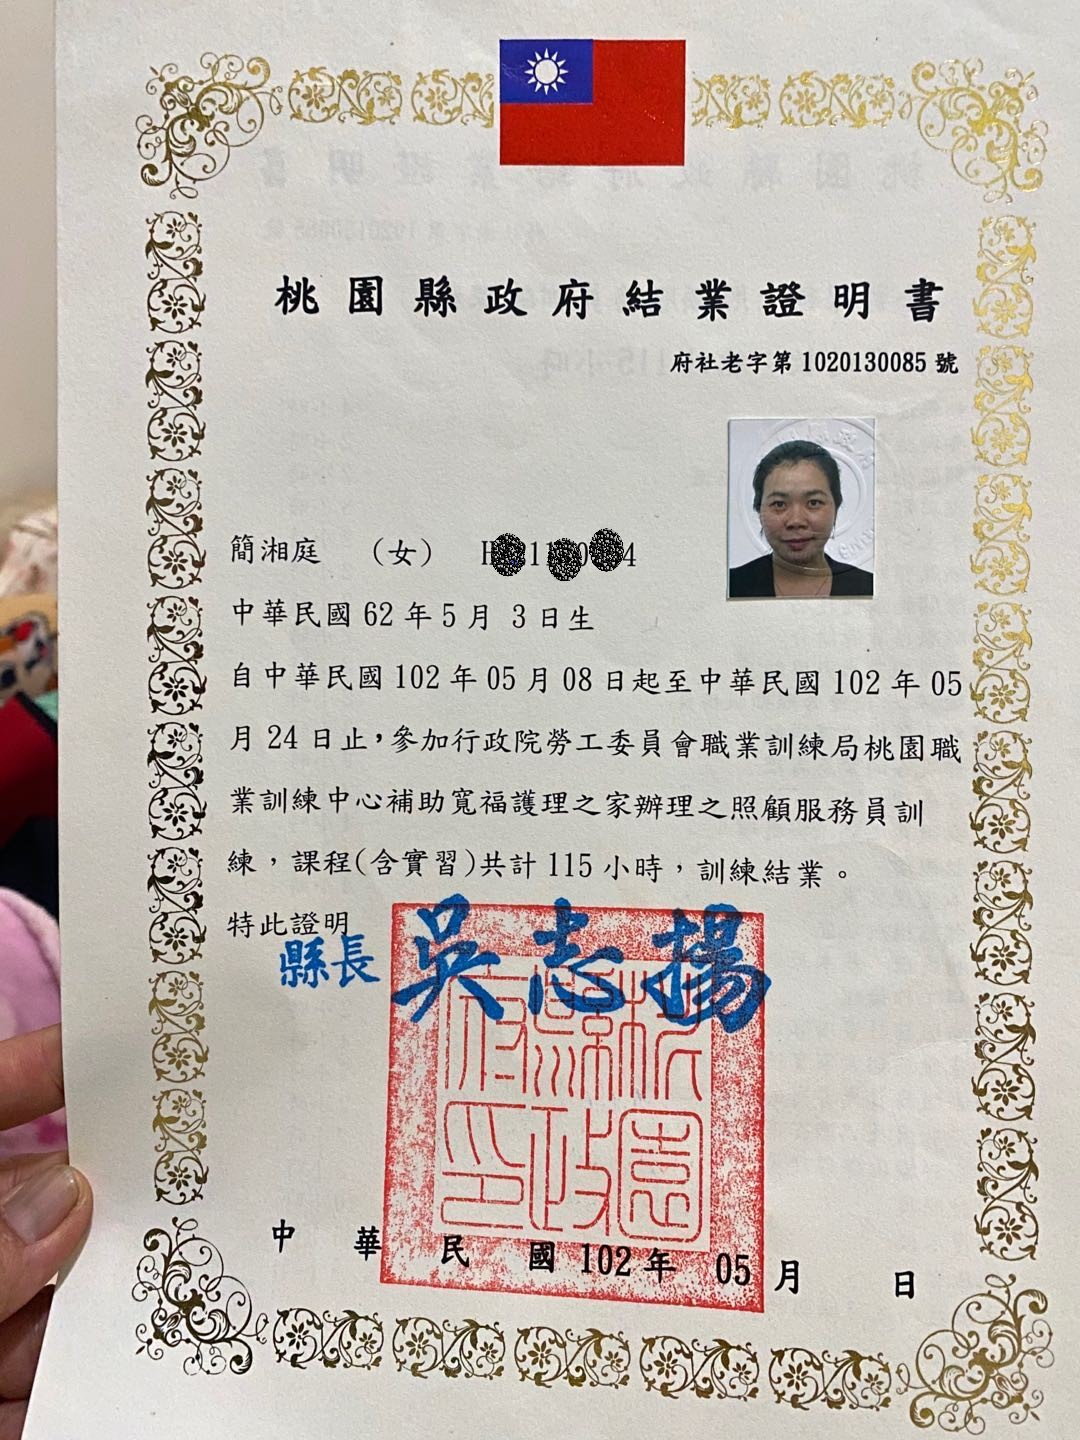 桃園縣政府結業證明書
府社老字第1020130085號
簡湘庭 （女） H 21 0 4
中華民國 62 年 5 月 3 日生
自中華民國 102 年 05 月 08 日起至中華民國 102 年 05
月 24 日止，參加行政院勞工委員會職業訓練局桃園職
業訓練中心補助寬福護理之家辦理之照顧服務員訓
練，課程(含實習)共計 115 小時，訓練結業。
特此證明
縣長 吳志揚
桃園縣政府印
中華民國 102 年 05 月 日